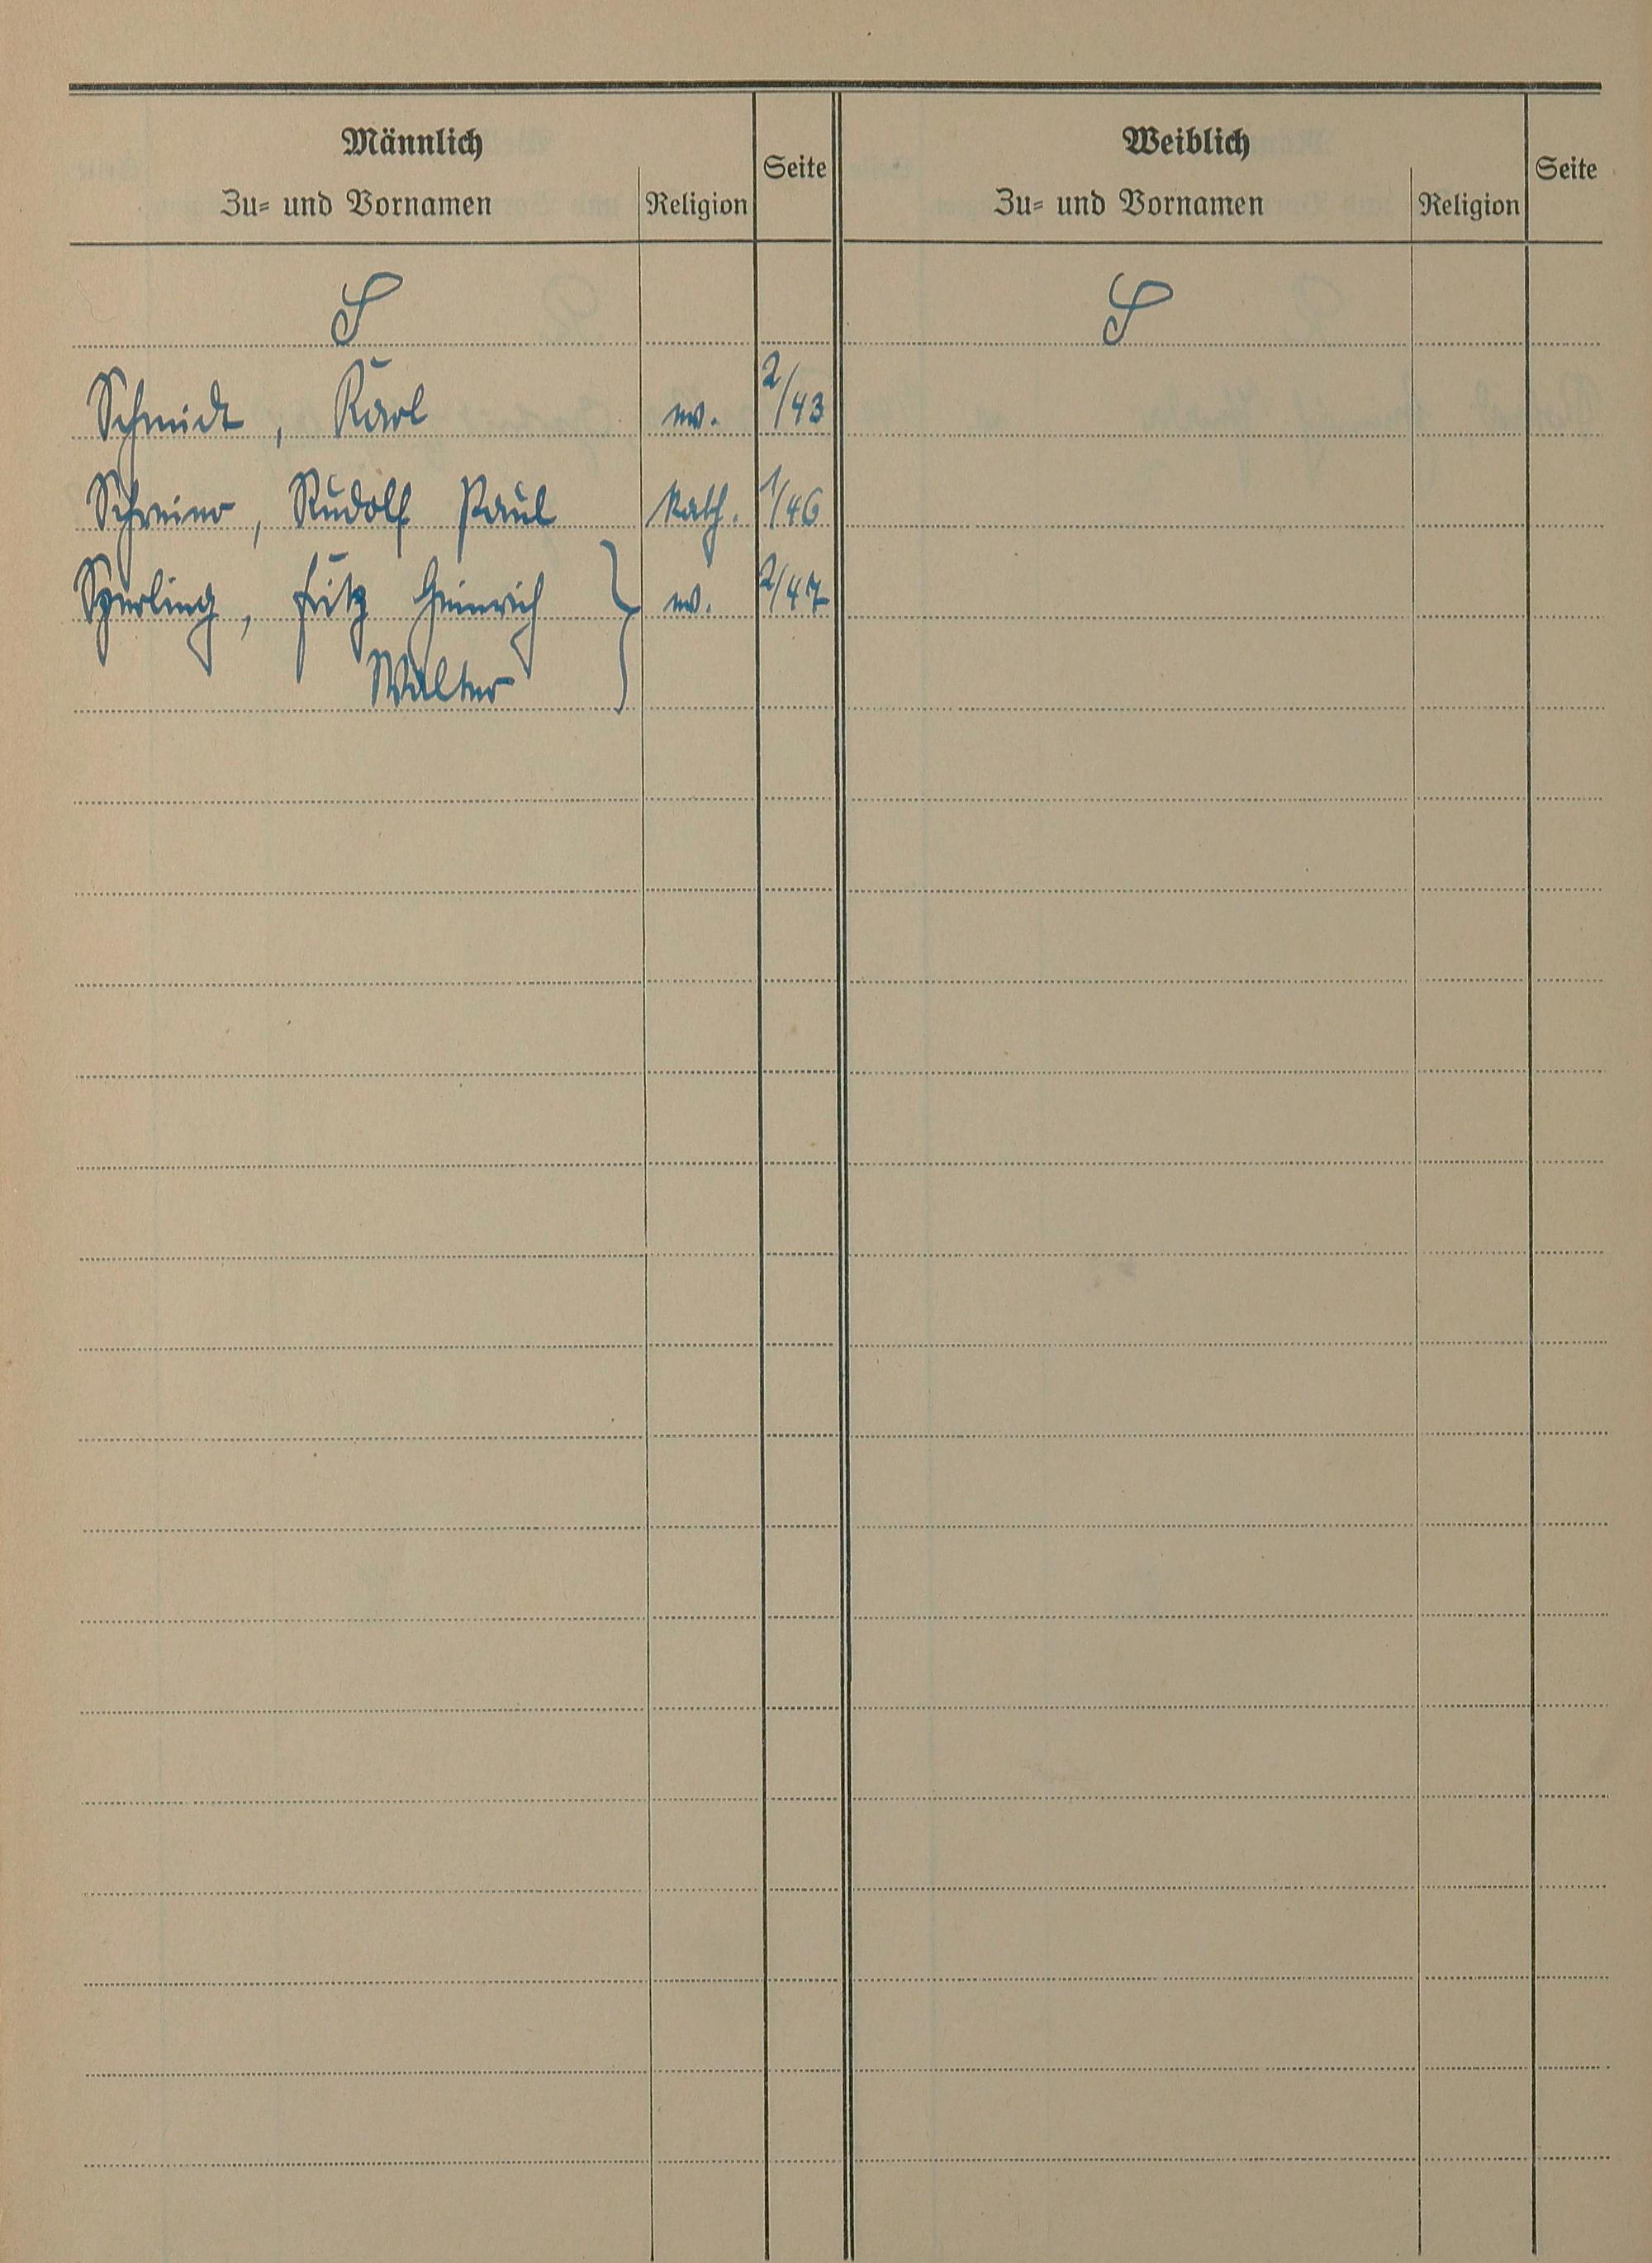 Männlich
Zu= und Vornamen Religion Seite
Weiblich
Zu= und Vornamen Religion Seite
S
S
Schmidt, Karl ev. 2/43
Schreiner, Rudolf Paul kath. 1/46
Sperling, Fritz Heinrich } ev. 2/47
Walter